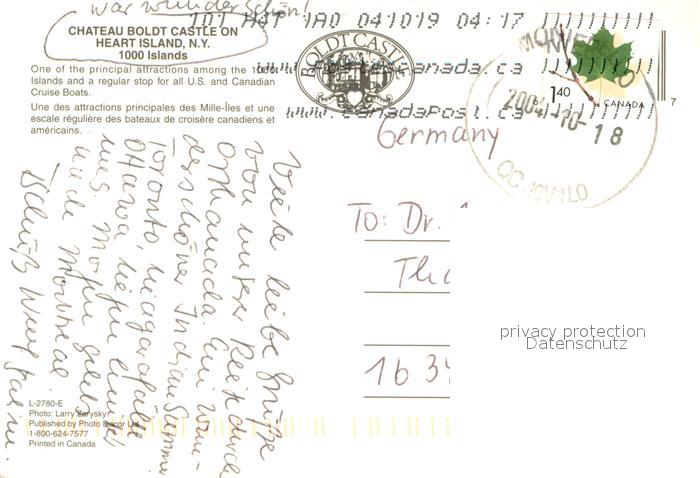 war wunderschön!
CHATEAU BOLDT CASTLE ON
HEART ISLAND, N.Y.
1000 Islands
One of the principal attractions among the 1000
Islands and a regular stop for all U.S. and Canadian
Cruise Boats.
Une des attractions principales des Mille-Îles et une
escale régulière des bateaux de croisère canadiens et
américains.
BOLDT CASTLE
101 H4T 1A0 041019 04:17
www. canada.ca
www.canadaPost.ca
1.40
CANADA
7
2004-10-18
QC J0V1L0
Germany
To: Dr.
16 34
privacy protection
Datenschutz
Viele liebe Grüße
von unserer Reise durch
Ostkanada. Ein wun-
derschöner Indian Summer
Toronto, Niagarafälle
Ottawa liegen hinter
uns. Morgen geht's
nach Montreal.
L-2780-E
Photo: Larry Zarysky
Published by Photo Decor Ltd.
1-800-624-7577
Printed in Canada